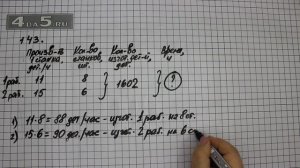 4da5.ru
143.
Произв-ть Кол-во Кол-во Время,
1 станка, станков, изгот. дет-й, ч
дет/ч шт. шт.
1 раб. 11 8 } 1602 ?
2 раб. 15 6
1) 11·8 = 88 дет/час - изгот. 1 раб. на 8 ст.
2) 15·6 = 90 дет/час - изгот. 2 раб. на 6 с